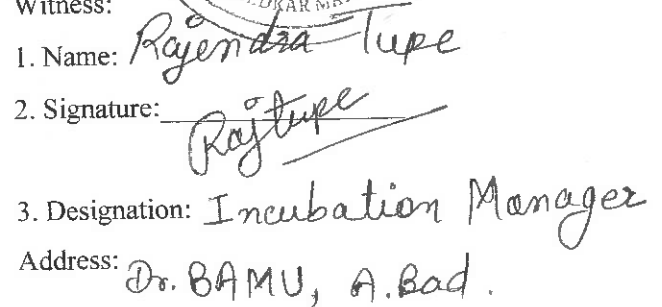 Witness:
DKAR MA
1. Name: Rajendra Tupe
2. Signature: Rajtupe
3. Designation: Incubation Manager
Address: Dr. BAMU, A.Bad.